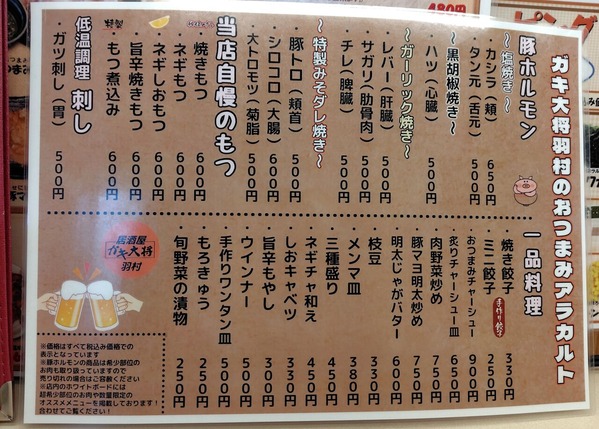 ガキ大将羽村のおつまみアラカルト
豚ホルモン
〜塩焼き〜
・カシラ(頬) 650円
・タン元(舌元) 500円
〜黒胡椒焼き〜
・ハツ(心臓) 500円
〜ガーリック焼き〜
・レバー(肝臓) 500円
・サガリ(肋骨肉) 500円
・チレ(脾臓) 500円
〜特製みそダレ焼き〜
・豚トロ(頬首) 500円
・シロコロ(大腸) 600円
・大トロモツ(菊脂) 500円
当店自慢のもつ
・焼きもつ 600円
・ネギもつ 600円
・ネギしおもつ 600円
・旨辛焼きもつ 600円
・もつ煮込み 600円
特製
低温調理 刺し
・ガツ刺し(胃) 500円
一品料理
・焼き餃子 330円
・ミニ餃子 250円
手作り餃子
・おつまみチャーシュー 900円
・炙りチャーシュー皿 650円
・肉野菜炒め 750円
・豚マヨ明太炒め 750円
・明太じゃがバター 600円
・枝豆 330円
・メンマ皿 380円
・三種盛り 450円
・ネギチャ和え 450円
・しおキャベツ 330円
・旨辛もやし 300円
・ウインナー 500円
・手作りワンタン皿 500円
・もろきゅう 250円
・旬野菜の漬物 250円
居酒屋
ガキ大将
羽村
※価格はすべて税込み価格での
表示となっています
※豚ホルモンの商品は希少部位の
お肉も取り扱っていますので
売り切れの場合はご容赦ください
※店内のホワイトボードには
超希少部位のお肉や数量限定の
オススメメニューを掲載しております！
合わせてご覧ください！
480円